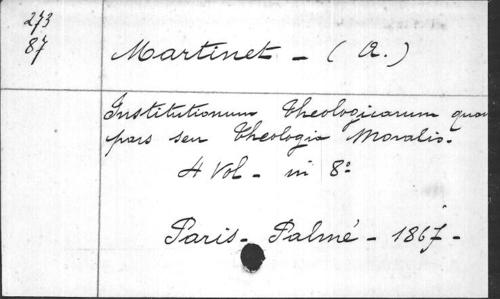 273
87
Martinet - (A.)
Institutionum theologicarum
pars seu theologia Moralis.
4 Vol - in 8º
Paris - Palmé - 1867 -